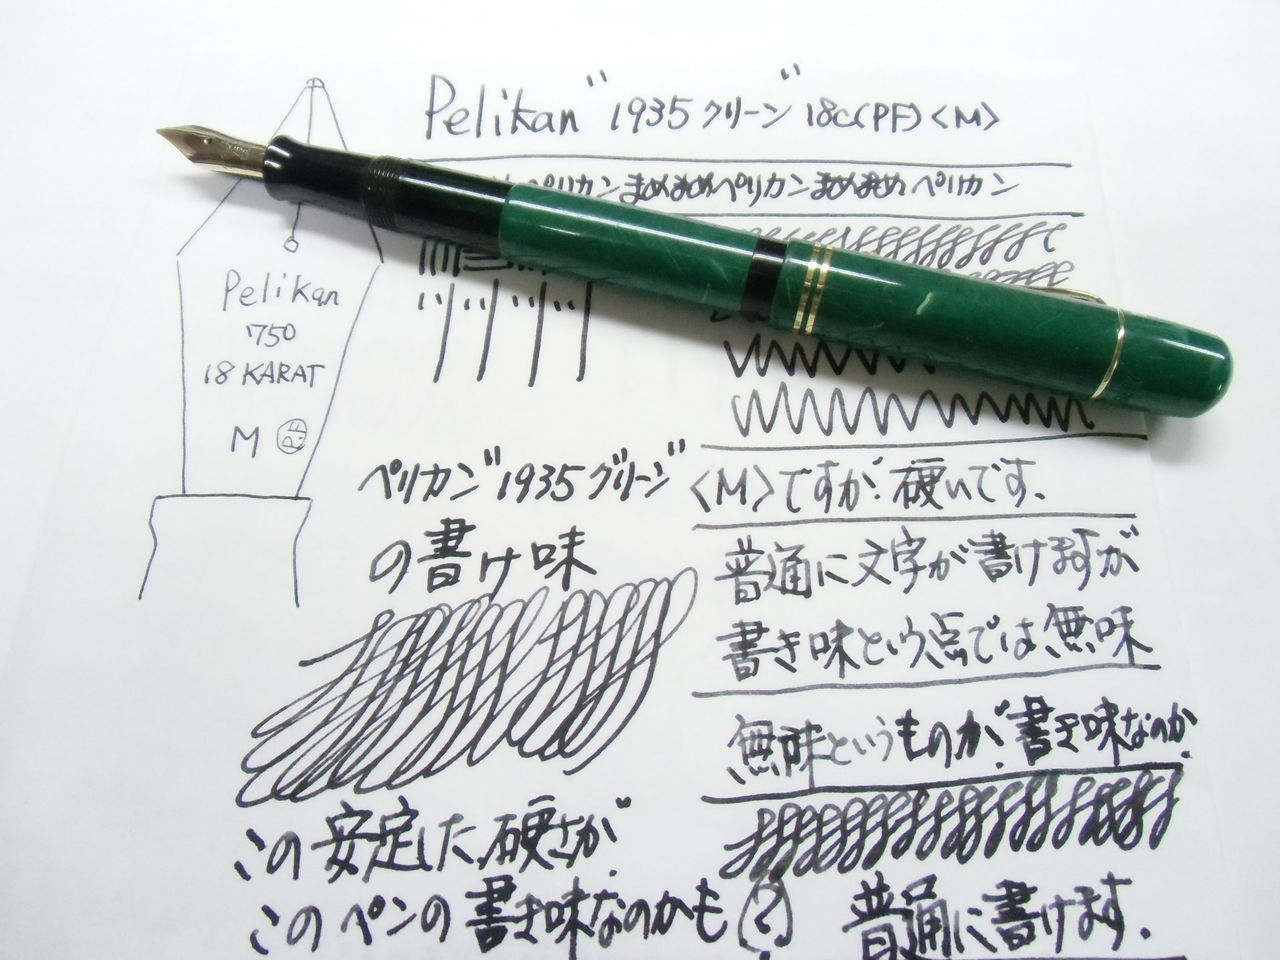 Pelikan "1935グリーン" 18c(PF)<M>
ペリカンまめまめペリカンまめまめペリカン
Pelikan
750
18 KARAT
M
ペリカン"1935グリーン"
の書け味
この安定した硬さが
このペンの書き味なのかも(?)
<M>ですが、硬いです、
普通に文字が書けますが
書き味という点では無味
無味というものが、書き味なのか、
普通に書けます.